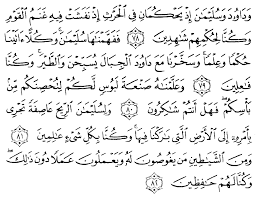 وَدَاوُۥدَ وَسُلَيْمَٰنَ إِذْ يَحْكُمَانِ فِى ٱلْحَرْثِ إِذْ نَفَشَتْ فِيهِ غَنَمُ ٱلْقَوْمِ
وَكُنَّا لِحُكْمِهِمْ شَٰهِدِينَ ٧٨ فَفَهَّمْنَٰهَا سُلَيْمَٰنَ وَكُلًّا ءَاتَيْنَا
حُكْمًا وَعِلْمًا وَسَخَّرْنَا مَعَ دَاوُۥدَ ٱلْجِبَالَ يُسَبِّحْنَ وَٱلطَّيْرَ وَكُنَّا
فَٰعِلِينَ ٧٩ وَعَلَّمْنَٰهُ صَنْعَةَ لَبُوسٍ لَّكُمْ لِتُحْصِنَكُم مِّنۢ
بَأْسِكُمْ فَهَلْ أَنتُمْ شَٰكِرُونَ ٨٠ وَلِسُلَيْمَٰنَ ٱلرِّيحَ عَاصِفَةً تَجْرِى
بِأَمْرِهِۦٓ إِلَى ٱلْأَرْضِ ٱلَّتِى بَٰرَكْنَا فِيهَا وَكُنَّا بِكُلِّ شَىْءٍ عَٰلِمِينَ ٨١
وَمِنَ ٱلشَّيَٰطِينِ مَن يَغُوصُونَ لَهُۥ وَيَعْمَلُونَ عَمَلًا دُونَ ذَٰلِكَ
وَكُنَّا لَهُمْ حَٰفِظِينَ ٨٢